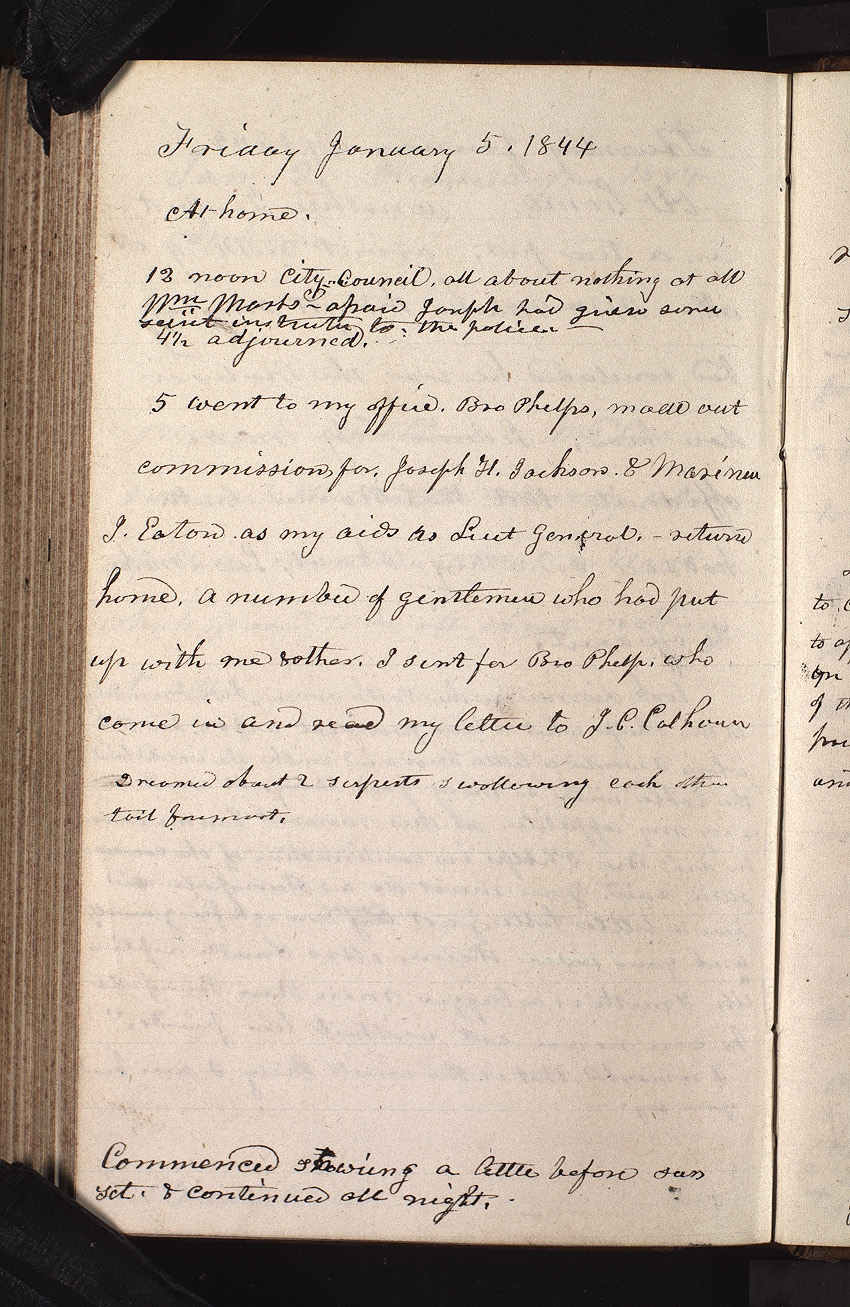 Friday January 5. 1844
At home.
12 noon City Council. all about nothing at all
Wm Marks afraid Joseph had given some
secret instructn to the police.
4½ adjourned.
5 went to my office. Bro Phelps, made out
commission for. Joseph H. Jackson. & Marinus
J. Eaton. as my aids as Lieut General. - return
home. a number of gentlemen who had put
up with me & other. I sent for Bro Phelps. who
come in and read my letter to J. C. Calhoun
Dreamed about 2 serpents swollowing each other
tail foremost.
Commenced snowing a little before sun
set. & continued all night.
to
to
on
of th
and